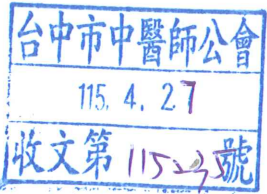 台中市中醫師公會
115.4.27
收文第 號